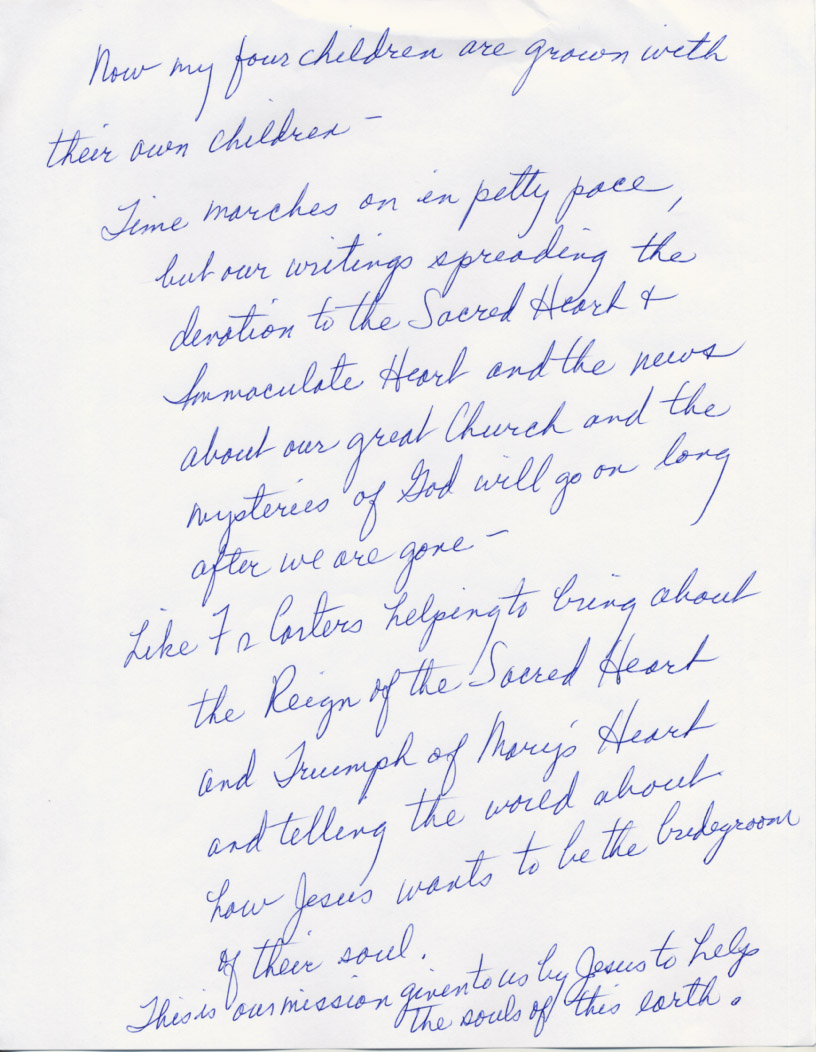 Now my four children are grown with
their own children –
Time marches on in petty pace,
but our writings spreading the
devotion to the Sacred Heart &
Immaculate Heart and the news
about our great Church and the
mysteries of God will go on long
after we are gone –
Like Fr Carters helping to bring about
the Reign of the Sacred Heart
and Triumph of Mary's Heart
and telling the world about
how Jesus wants to be the bridegroom
of their soul.
This is our mission given to us by Jesus to help
the souls of this earth.